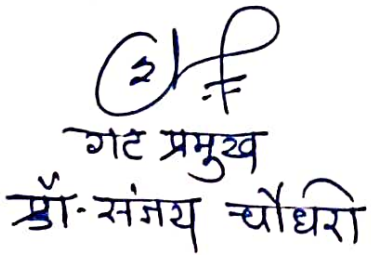 गट प्रमुख
प्रॉ. संजय चौधरी